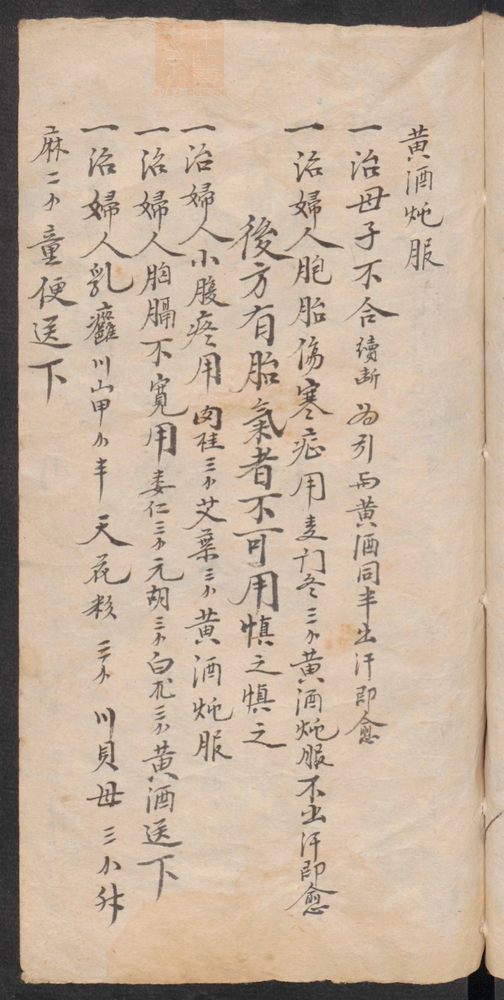 黄酒炖服
一治母子不合續断為引两黄酒同半出汗即愈
一治婦人胞胎傷寒症用麦门冬三小黄酒炖服不出汗即愈
後方有胎氣者不可用慎之慎之
一治婦人小腹疼用肉桂三小艾葉三小黄酒炖服
一治婦人胸膈不寬用娄仁三小元胡三小白朮三小黄酒送下
一治婦人乳癰川山甲小半天花粉三小川貝母三小升
麻二小童便送下